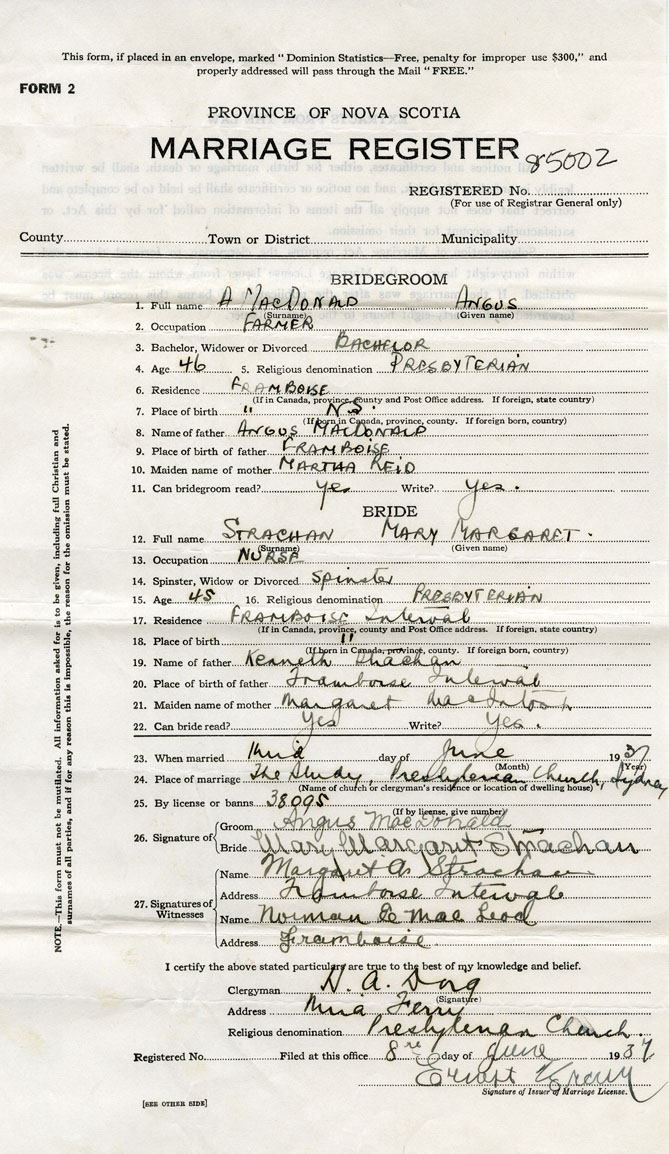 This form, if placed in an envelope, marked "Dominion Statistics—Free, penalty for improper use $300," and
properly addressed will pass through the Mail "FREE."
FORM 2
PROVINCE OF NOVA SCOTIA
MARRIAGE REGISTER
85002
REGISTERED No.
(For use of Registrar General only)
County Town or District Municipality
BRIDEGROOM
1. Full name A MacDonald Angus
(Surname) (Given name)
2. Occupation Farmer
3. Bachelor, Widower or Divorced Bachelor
4. Age 46 5. Religious denomination Presbyterian
6. Residence Framboise
(If in Canada, province, county and Post Office address. If foreign, state country)
7. Place of birth " N.S.
(If born in Canada, province, county. If foreign born, country)
8. Name of father Angus MacDonald
9. Place of birth of father Framboise
10. Maiden name of mother Martha Reid
11. Can bridegroom read? yes Write? yes.
BRIDE
12. Full name Strachan Mary Margaret.
(Surname) (Given name)
13. Occupation Nurse
14. Spinster, Widow or Divorced Spinster
15. Age 45 16. Religious denomination Presbyterian
17. Residence Framboise Interval
(If in Canada, province, county and Post Office address. If foreign, state country)
18. Place of birth "
(If born in Canada, province, county. If foreign born, country)
19. Name of father Kenneth Strachan
20. Place of birth of father Framboise Interval
21. Maiden name of mother Margaret MacIntosh
22. Can bride read? Yes Write? Yes.
23. When married Third day of June 1937
(Month) (Year)
24. Place of marriage The Study, Presbyterian Church, Sydney
(Name of church or clergyman's residence or location of dwelling house)
25. By license or banns 38095
(If by license, give number)
26. Signature of
Groom Angus MacDonald
Bride Mary Margaret Strachan
27. Signatures of Witnesses
Name Margaret A Strachan
Address Framboise Intervale
Name Norman MacLeod
Address Framboise.
I certify the above stated particulars are true to the best of my knowledge and belief.
Clergyman H. A.
(Signature)
Address Mira Ferry
Religious denomination Presbyterian Church.
Registered No. Filed at this office 8 day of June 1937
Signature of Issuer of Marriage License.
[SEE OTHER SIDE]
NOTE.—This form must not be mutilated. All information asked for is to be given, including full Christian and
surnames of all parties, and if for any reason this is impossible, the reason for the omission must be stated.